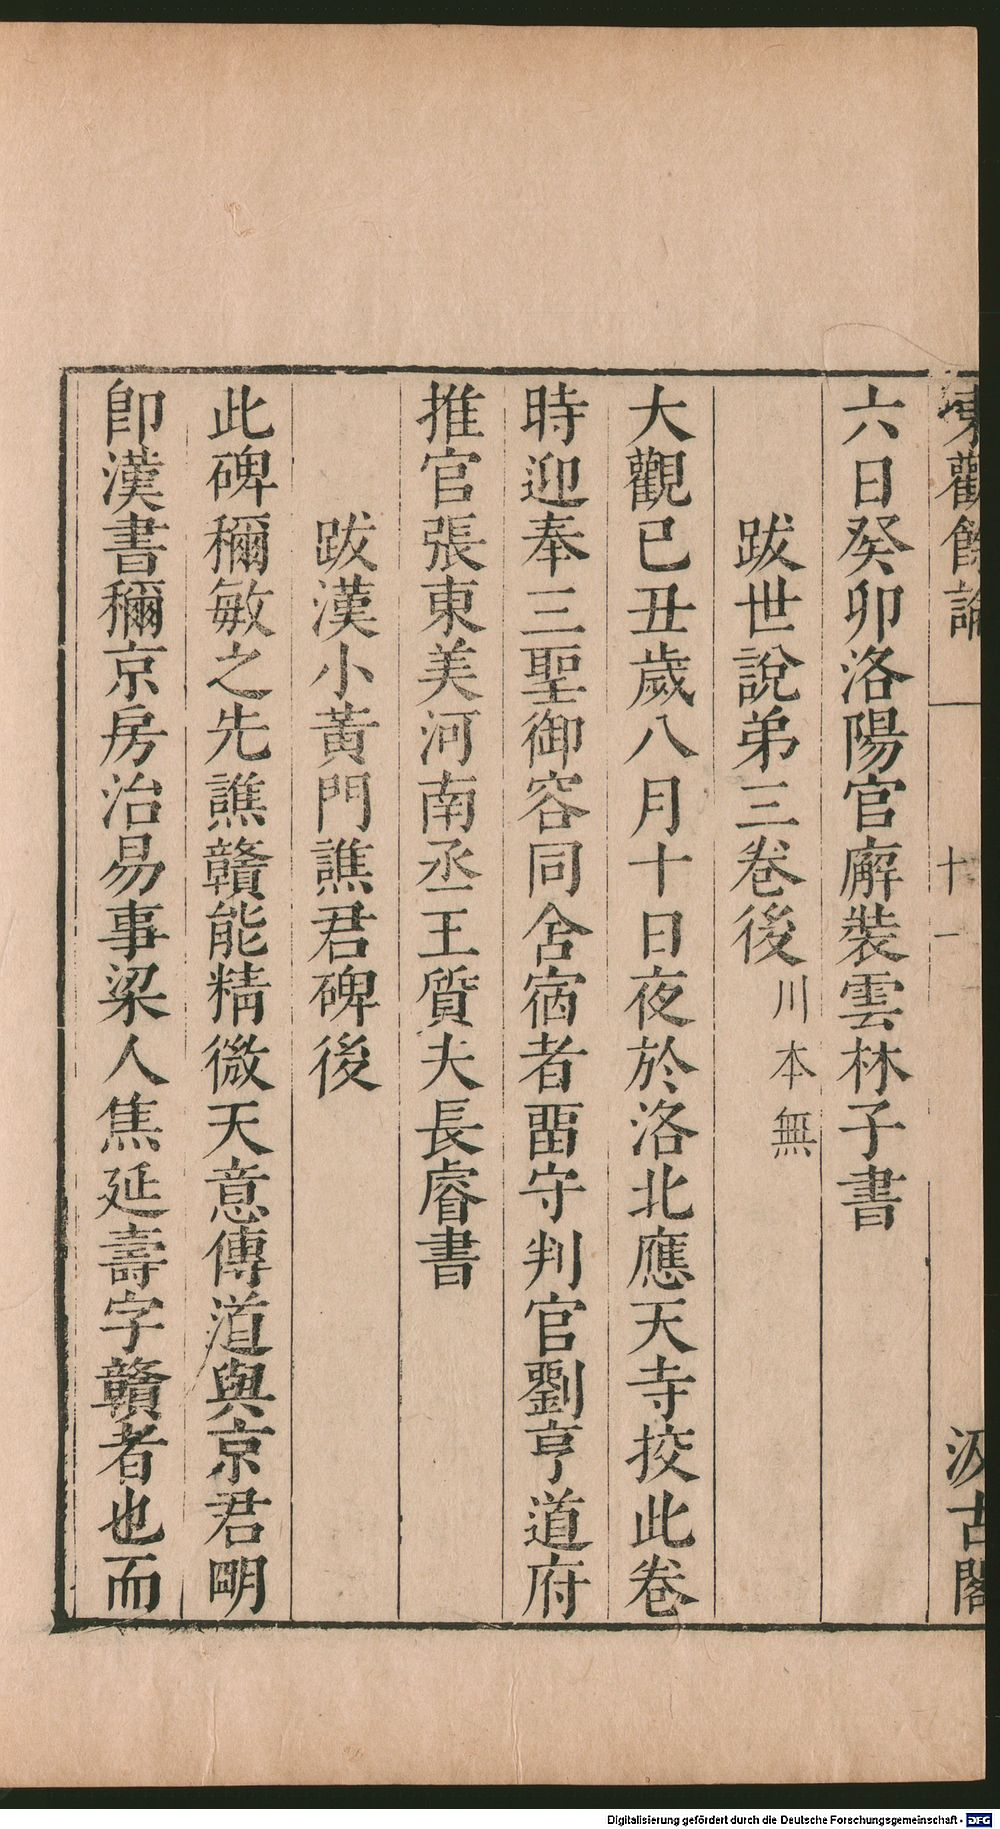 東觀餘論
十一
汲古閣
六日癸卯洛陽官廨裝雲林子書
跋世說弟三卷後川本無
大觀已丑歲八月十日夜於洛北應天寺挍此卷
時迎奉三聖御容同舍宿者畱守判官劉亨道府
推官張東美河南丞王質夫長睿書
跋漢小黃門譙君碑後
此碑稱敏之先譙贛能精微天意傳道與京君朙
卽漢書稱京房治易事梁人焦延壽字贛者也而
Digitalisierung gefördert durch die Deutsche Forschungsgemeinschaft - DFG